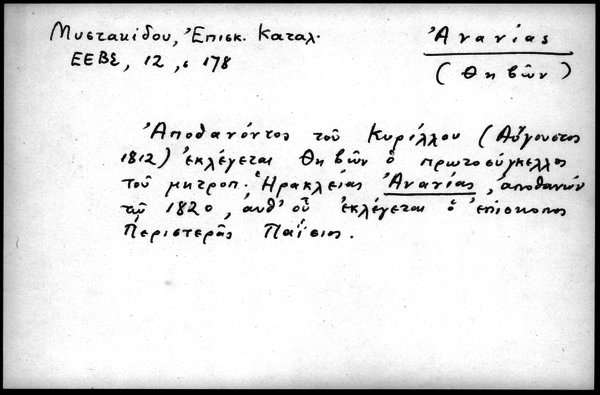 Μυστακίδου, Ἐπισκ. Καταλ.
ΕΕΒΣ, 12, σ 178
Ἀνανίας
(Θηβῶν)
Ἀποθανόντος τοῦ Κυρίλλου (Αὔγουστος
1812) ἐκλέγεται Θηβῶν ὁ πρωτοσύγκελλος
τοῦ μητροπ. Ἡρακλείας Ἀνανίας, ἀποθανών
τῷ 1820, ἀνθ' οὗ ἐκλέγεται ὁ ἐπίσκοπος
Περιστερᾶς Παΐσιος.